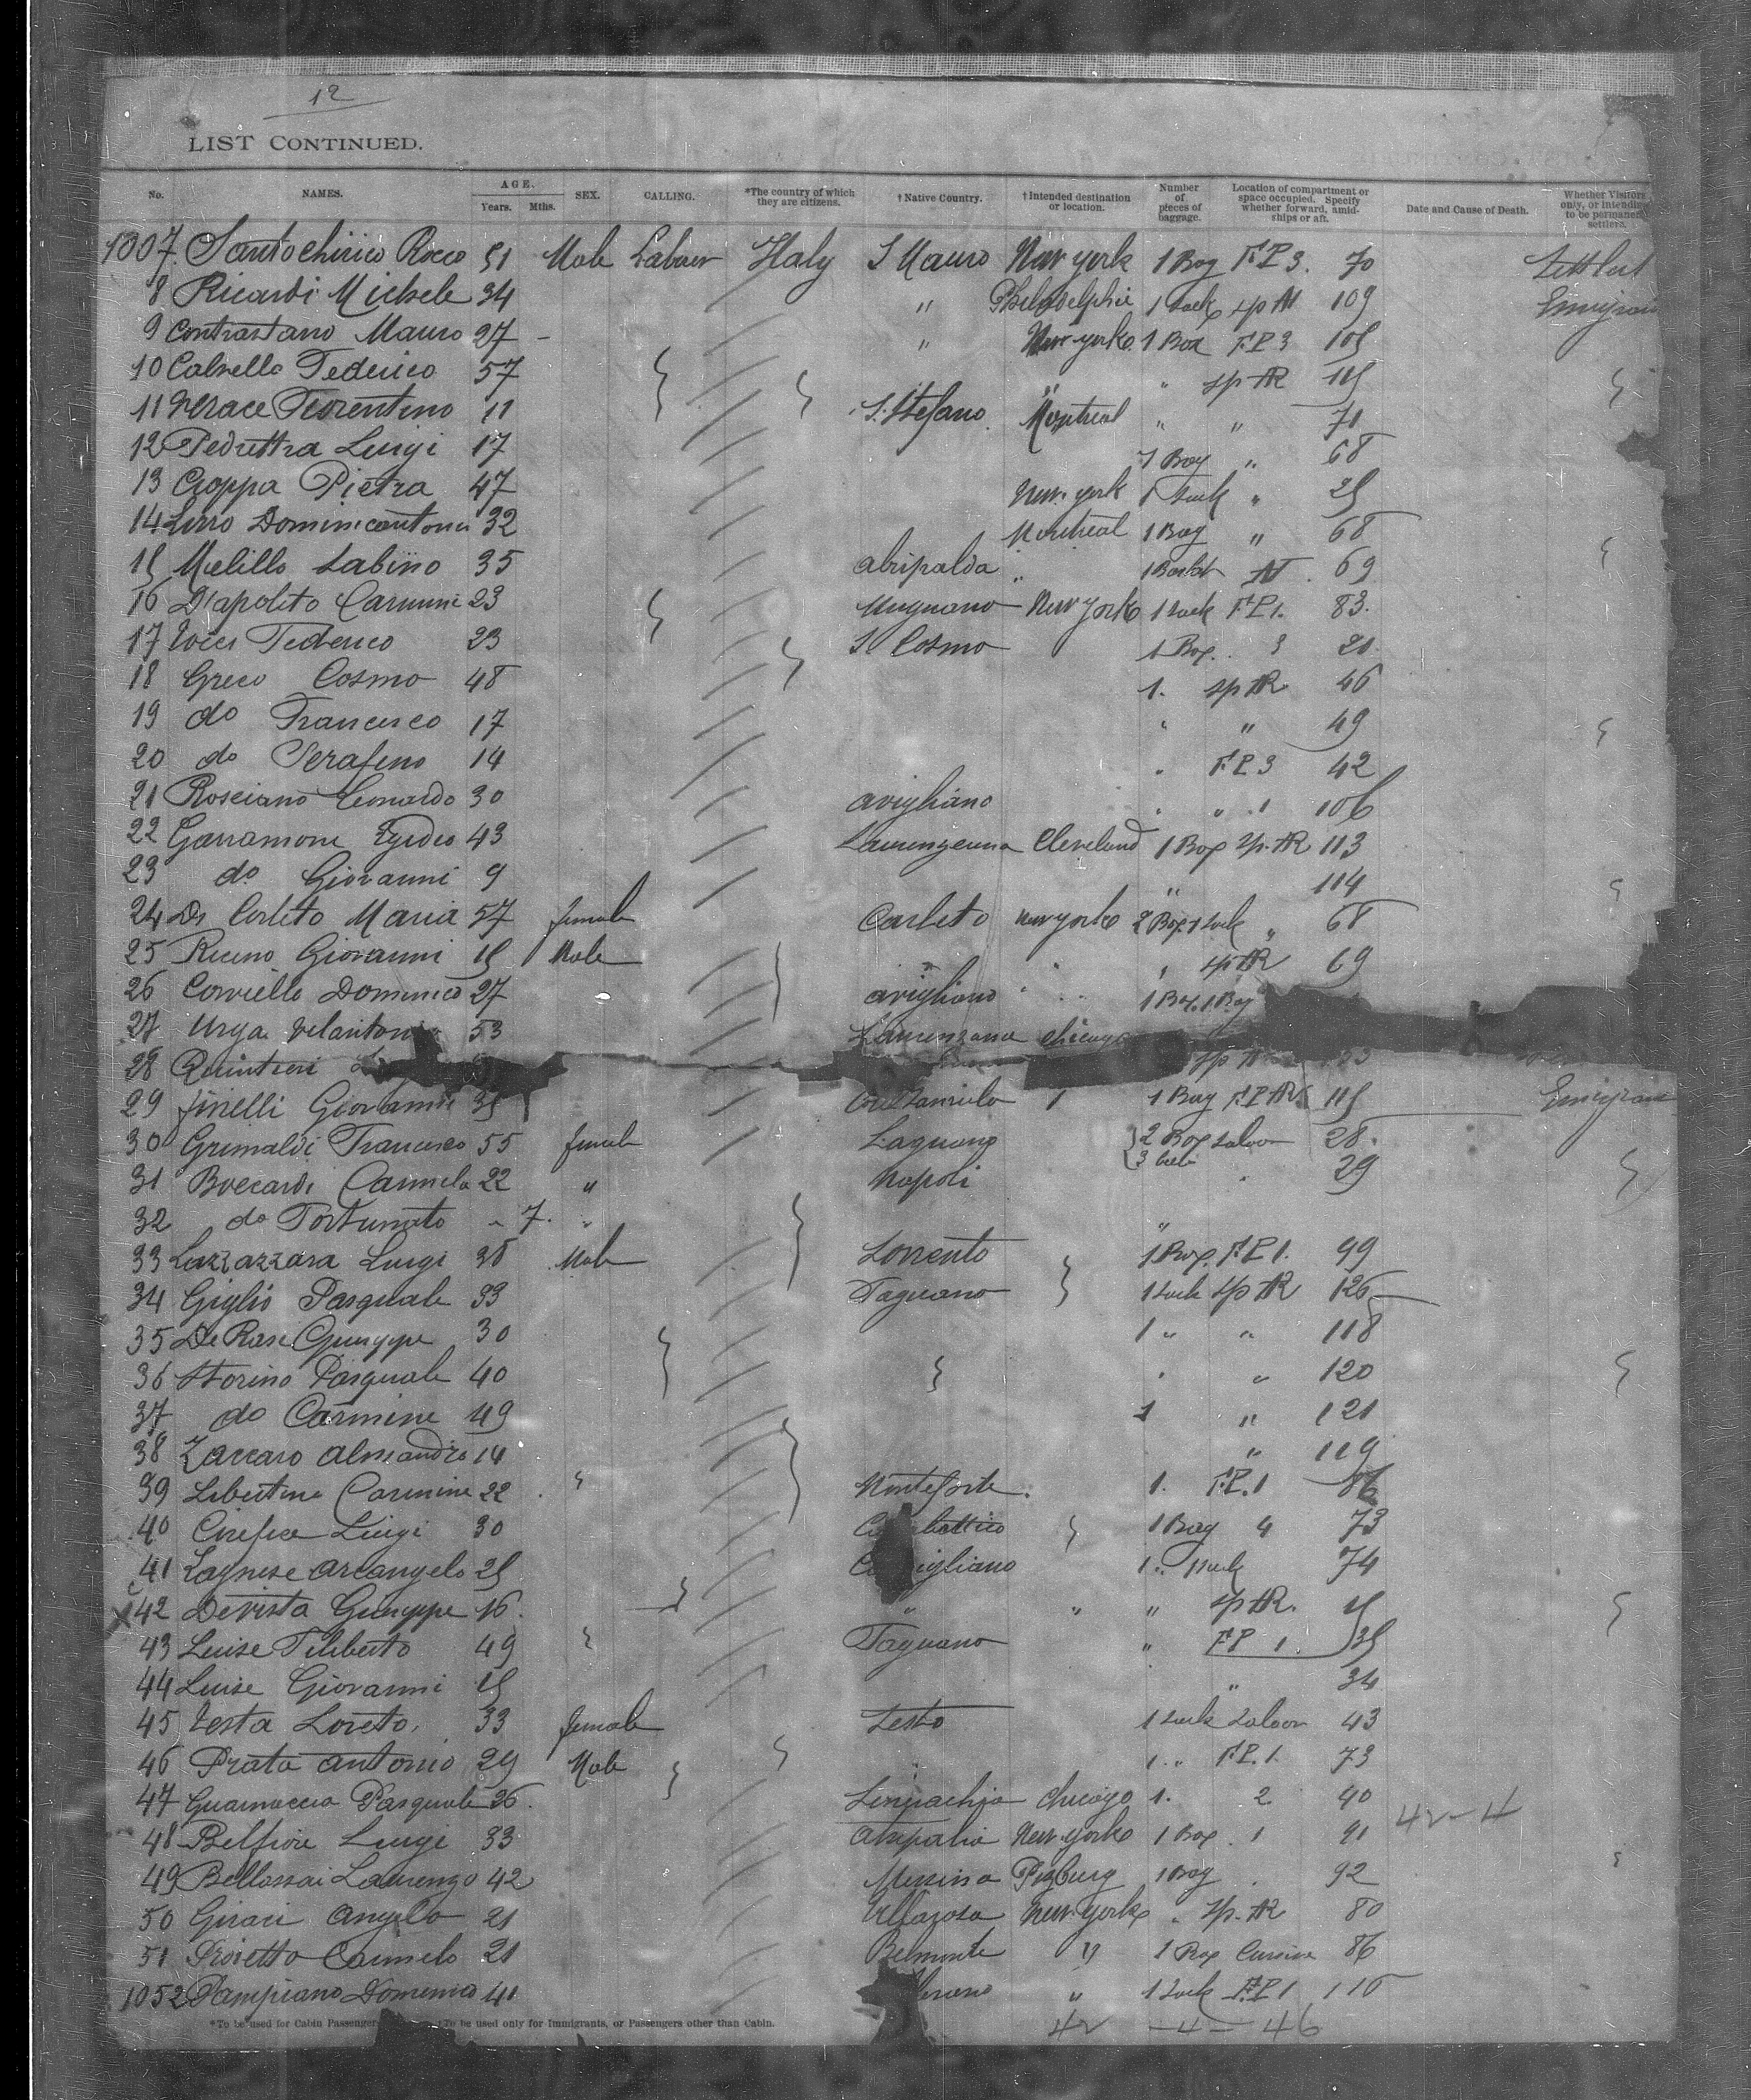 12
LIST CONTINUED.
No. NAMES. AGE. Years. Mths. SEX. CALLING. *The country of which they are citizens. †Native Country. †Intended destination or location. Number of pieces of baggage. Location of compartment or space occupied. Specify whether forward, amidships or aft. Date and Cause of Death. Whether Visitors only, or intending to be permanent settlers.
1007 Santochirico Rocco 51 Male Labour Italy S Mauro New york 1 Bag F.P 3. 70
8 Ricardi Michele 34 " Philadelphia 1 Sack 109
9 Contrastano Mauro 27 - " New yorke 1 Box F.P 3 105
10 Calvello Federico 57 " " sp AR 115
11 Verace Fiorentino 11 S. Stefano Montreal " " 71
12 Pedruttra Luigi 17 1 Bag " 68
13 Croppa Pietra 47 New york 1 Sack " 25
14 Domenicantonio 32 Montreal 1 Bag " 68
15 Melillo Sabino 35 Atripalda " 69
16 D'apolito Carmine 23 Mugnano New yorke 1 Sack F.P 1. 83.
17 Federico 23 S Cosmo 1 Box. 3 20.
18 Greco Cosmo 48 1. sp AR 46
19 do Francesco 17 " " 49
20 do Serafino 14 " F.P 3 42
21 Rosciano Leonardo 30 avigliano " " 1 106
22 Garramone Egidio 43 Cleveland 1 Box sp. AR 113
23 do Giovanni 9 " 114
24 De Corleto Maria 57 female Corleto new yorke 2 Box 1 Sack " 68
25 Giovanni 15 Male " " sp AR 69
26 Corviello Domenico 27 avigliano " 1 Box. 1 Bag
27 Urga 53 Laurenzana chicago
28 Quintieri sp
29 Finelli Giovanni 35 1 Bag F.P AR 115 Emigrant
30 Grimaldi Francesco 55 female Laguano 2 Box Saloon 28.
31 Carmela 22 " Napoli 29
32 do Fortunato - 7. " "
33 Lazzazzara Luigi 38 Male Sorrento 1 Box. F.P 1. 99
34 Giglio Pasquale 33 Faguano 1 Sack sp AR 126
35 De Rose Giuseppe 30 1 " " 118
36 Storino Pasquale 40 " " 120
37 do Carmine 49 1 " 121
38 Zaccaro Alessandro 14 " 119
39 Libertine Carmine 22 Monteforte. 1. F.P. 1 86
40 Luigi 30 1 Bag 4 73
41 Lagnese Arcangelo 25 igliano 1 Sack 74
42 Devista Giuseppe 16. " " " sp AR.
43 Luise Filiberto 49 Faguano " F.P 1. 35
44 Luise Giovanni 15 " 34
45 Testa Loreto. 33 female Sesto 1 Sack Saloon 43
46 Prata Antonio 29 Male 1. " F.P. 1. 73
47 Guarnaccia Pasquale 36. chicago 1. 2 40
48 Belfiore Luigi 33 New-yorke 1 Box. 1 91 42-4
49 Bellassai Laurenzo 42 Messina Pizburg 1 Bag 92
50 Girari Angelo 21 Villarosa New yorke " sp. AR 80
51 Proietto Carmelo 21 Belmonte " 1 Box 86
1052 Pampiano Domenico 41 " 1 Sack F.P 1 116
*To be used for Cabin Passenger To be used only for Immigrants, or Passengers other than Cabin.
42 - 4 - 46